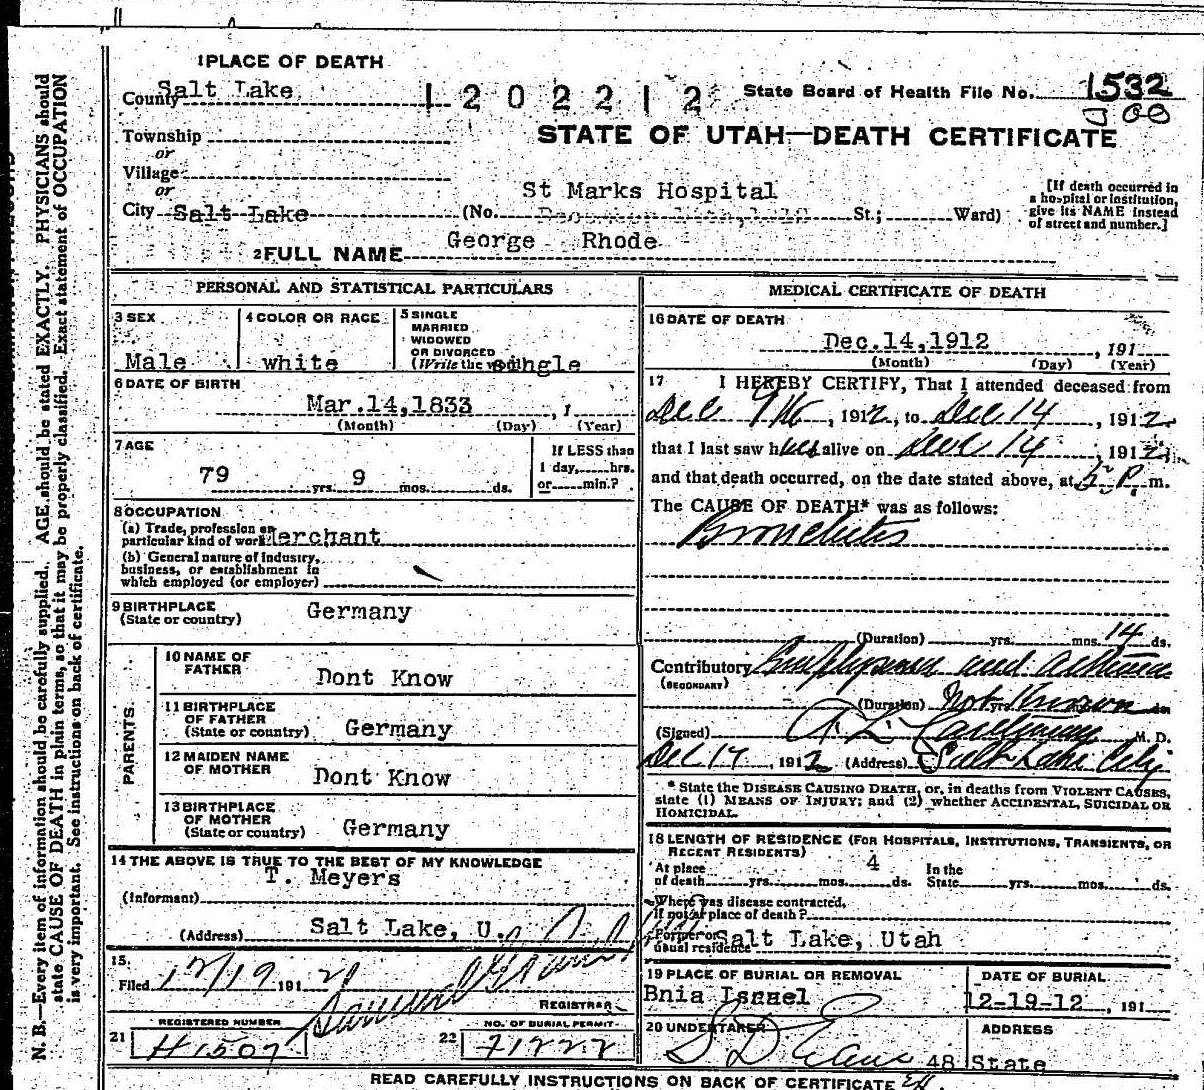 1 PLACE OF DEATH
County Salt Lake
1202212
State Board of Health File No. 1532
Township
or
Village
or
City Salt Lake
STATE OF UTAH—DEATH CERTIFICATE
St Marks Hospital
(No. St.; Ward)
[If death occurred in a hospital or institution, give its NAME instead of street and number.]
2 FULL NAME George Rhode
PERSONAL AND STATISTICAL PARTICULARS
3 SEX
Male
4 COLOR OR RACE
white
5 SINGLE
MARRIED
WIDOWED
OR DIVORCED
(Write the word) single
6 DATE OF BIRTH
Mar.14,1833, 1
(Month) (Day) (Year)
7 AGE
79 yrs. 9 mos. ds.
If LESS than
1 day, hrs.
or min.?
8 OCCUPATION
(a) Trade, profession or
particular kind of work Merchant
(b) General nature of industry,
business, or establishment in
which employed (or employer)
9 BIRTHPLACE
(State or country) Germany
PARENTS
10 NAME OF
FATHER Dont Know
11 BIRTHPLACE
OF FATHER
(State or country) Germany
12 MAIDEN NAME
OF MOTHER Dont Know
13 BIRTHPLACE
OF MOTHER
(State or country) Germany
14 THE ABOVE IS TRUE TO THE BEST OF MY KNOWLEDGE
T. Meyers
(Informant)
(Address) Salt Lake, U.
15.
Filed 12/19 191
REGISTRAR
REGISTERED NUMBER
21 H1507
NO. OF BURIAL PERMIT
22 71222
MEDICAL CERTIFICATE OF DEATH
16 DATE OF DEATH
Dec.14,1912, 191
(Month) (Day) (Year)
17 I HEREBY CERTIFY, That I attended deceased from
Dec 9th, 1912, to Dec 14, 1912
that I last saw him alive on Dec 14, 1912
and that death occurred, on the date stated above, at 5 P. m.
The CAUSE OF DEATH* was as follows:
Bronchitis
(Duration) yrs. mos. 14 ds.
Contributory Emphysema and Asthma
(SECONDARY)
(Duration) Not Known yrs. ds.
(Signed) M. D.
Dec 17, 1912 (Address) Salt Lake City
* State the DISEASE CAUSING DEATH, or, in deaths from VIOLENT CAUSES,
state (1) MEANS OF INJURY; and (2) whether ACCIDENTAL, SUICIDAL OR
HOMICIDAL.
18 LENGTH OF RESIDENCE (FOR HOSPITALS, INSTITUTIONS, TRANSIENTS, OR
RECENT RESIDENTS)
At place
of death yrs. mos. 4 ds.
In the
State yrs. mos. ds.
Where was disease contracted,
if not at place of death?
Former or
usual residence Salt Lake, Utah
19 PLACE OF BURIAL OR REMOVAL
Bnia Israel
DATE OF BURIAL
12-19-12, 191
20 UNDERTAKER
S D Evans
ADDRESS
48 State
READ CAREFULLY INSTRUCTIONS ON BACK OF CERTIFICATE
N. B.—Every item of information should be carefully supplied. AGE should be stated EXACTLY. PHYSICIANS should
state CAUSE OF DEATH in plain terms, so that it may be properly classified. Exact statement of OCCUPATION
is very important. See instructions on back of certificate.